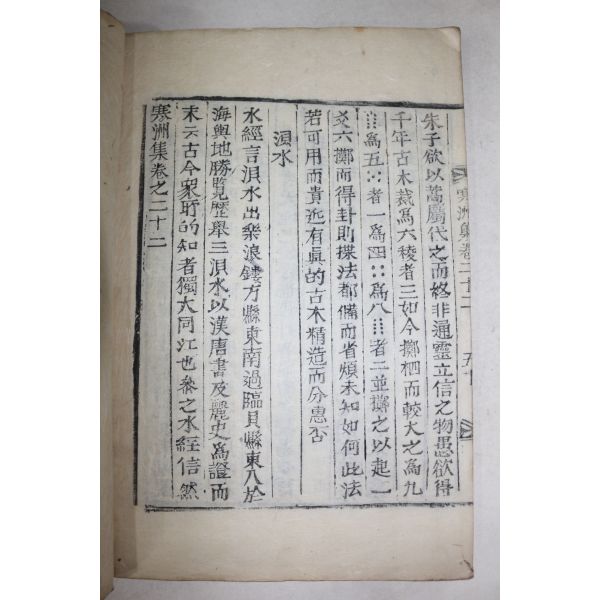 寒洲集卷二十二 五十
朱子欲以蓍屬代之而終非通靈立信之物愚欲得
千年古木裁爲六稜者三如今擲栖而較大之爲九
爲五者一爲四爲八者二並擲之以起一
爻六擲而得卦則揲法都備而省煩未知如何此法
若可用而貴近有眞的古木精造而分惠否
浿水
水經言浿水出樂浪鏤方縣東南過臨貝縣東入於
海輿地勝覽歷舉三浿水以漢唐書及麗史爲證而
末云古今衆所的知者獨大同江也參之水經信然
寒洲集卷之二十二